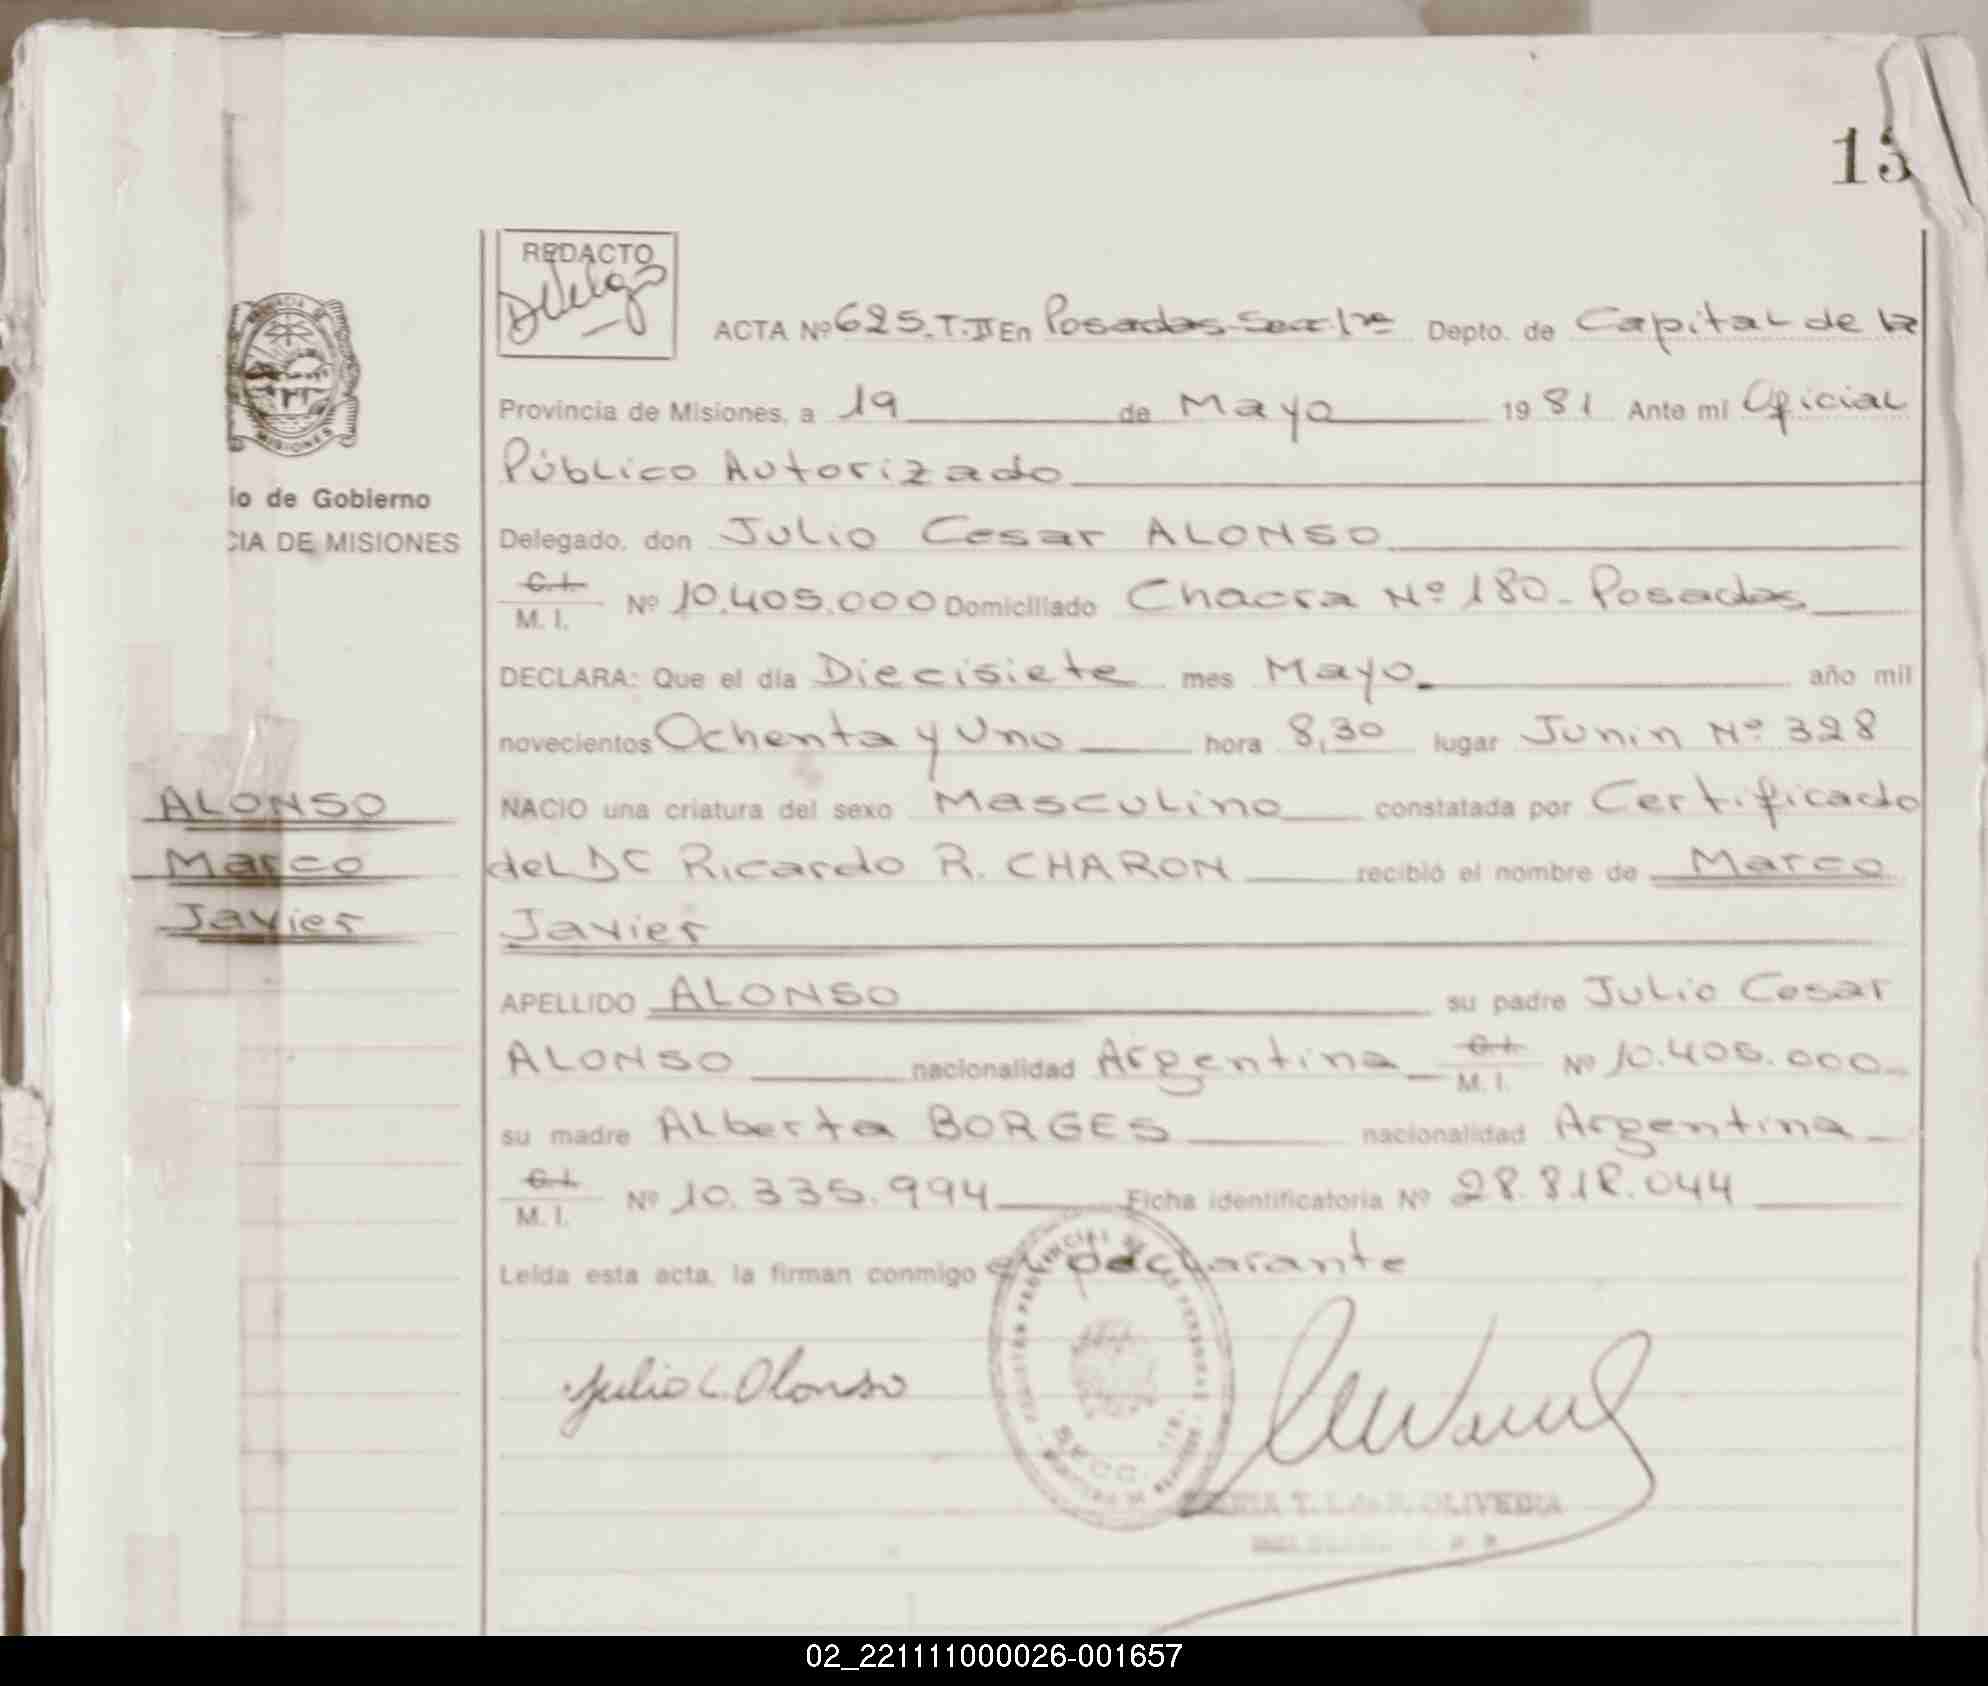 15
REDACTO
ACTA Nº 625.T.II En Posadas Secc 1ra Depto. de Capital de la
Provincia de Misiones, a 19 de Mayo 1981 Ante mi Oficial
Público Autorizado
io de Gobierno
CIA DE MISIONES
Delegado, don Julio Cesar ALONSO
C.I.
M. I. Nº 10.405.000 Domiciliado Chacra Nº 180 - Posadas
DECLARA: Que el día Diecisiete mes Mayo año mil
novecientos Ochenta y Uno hora 8,30 lugar Junin Nº 328
ALONSO
Marco
Javier
NACIO una criatura del sexo Masculino constatada por Certificado
del Dr Ricardo R. CHARON recibió el nombre de Marco
Javier
APELLIDO ALONSO su padre Julio Cesar
ALONSO nacionalidad Argentina C.I. M. I. Nº 10.405.000
su madre Alberta BORGES nacionalidad Argentina
C.I.
M. I. Nº 10.335.994 Ficha identificatoria Nº 28.818.044
Leída esta acta, la firman conmigo el declarante
Julio C. Alonso
SECC. 1ra.
OLIVEIRA
02_221111000026-001657